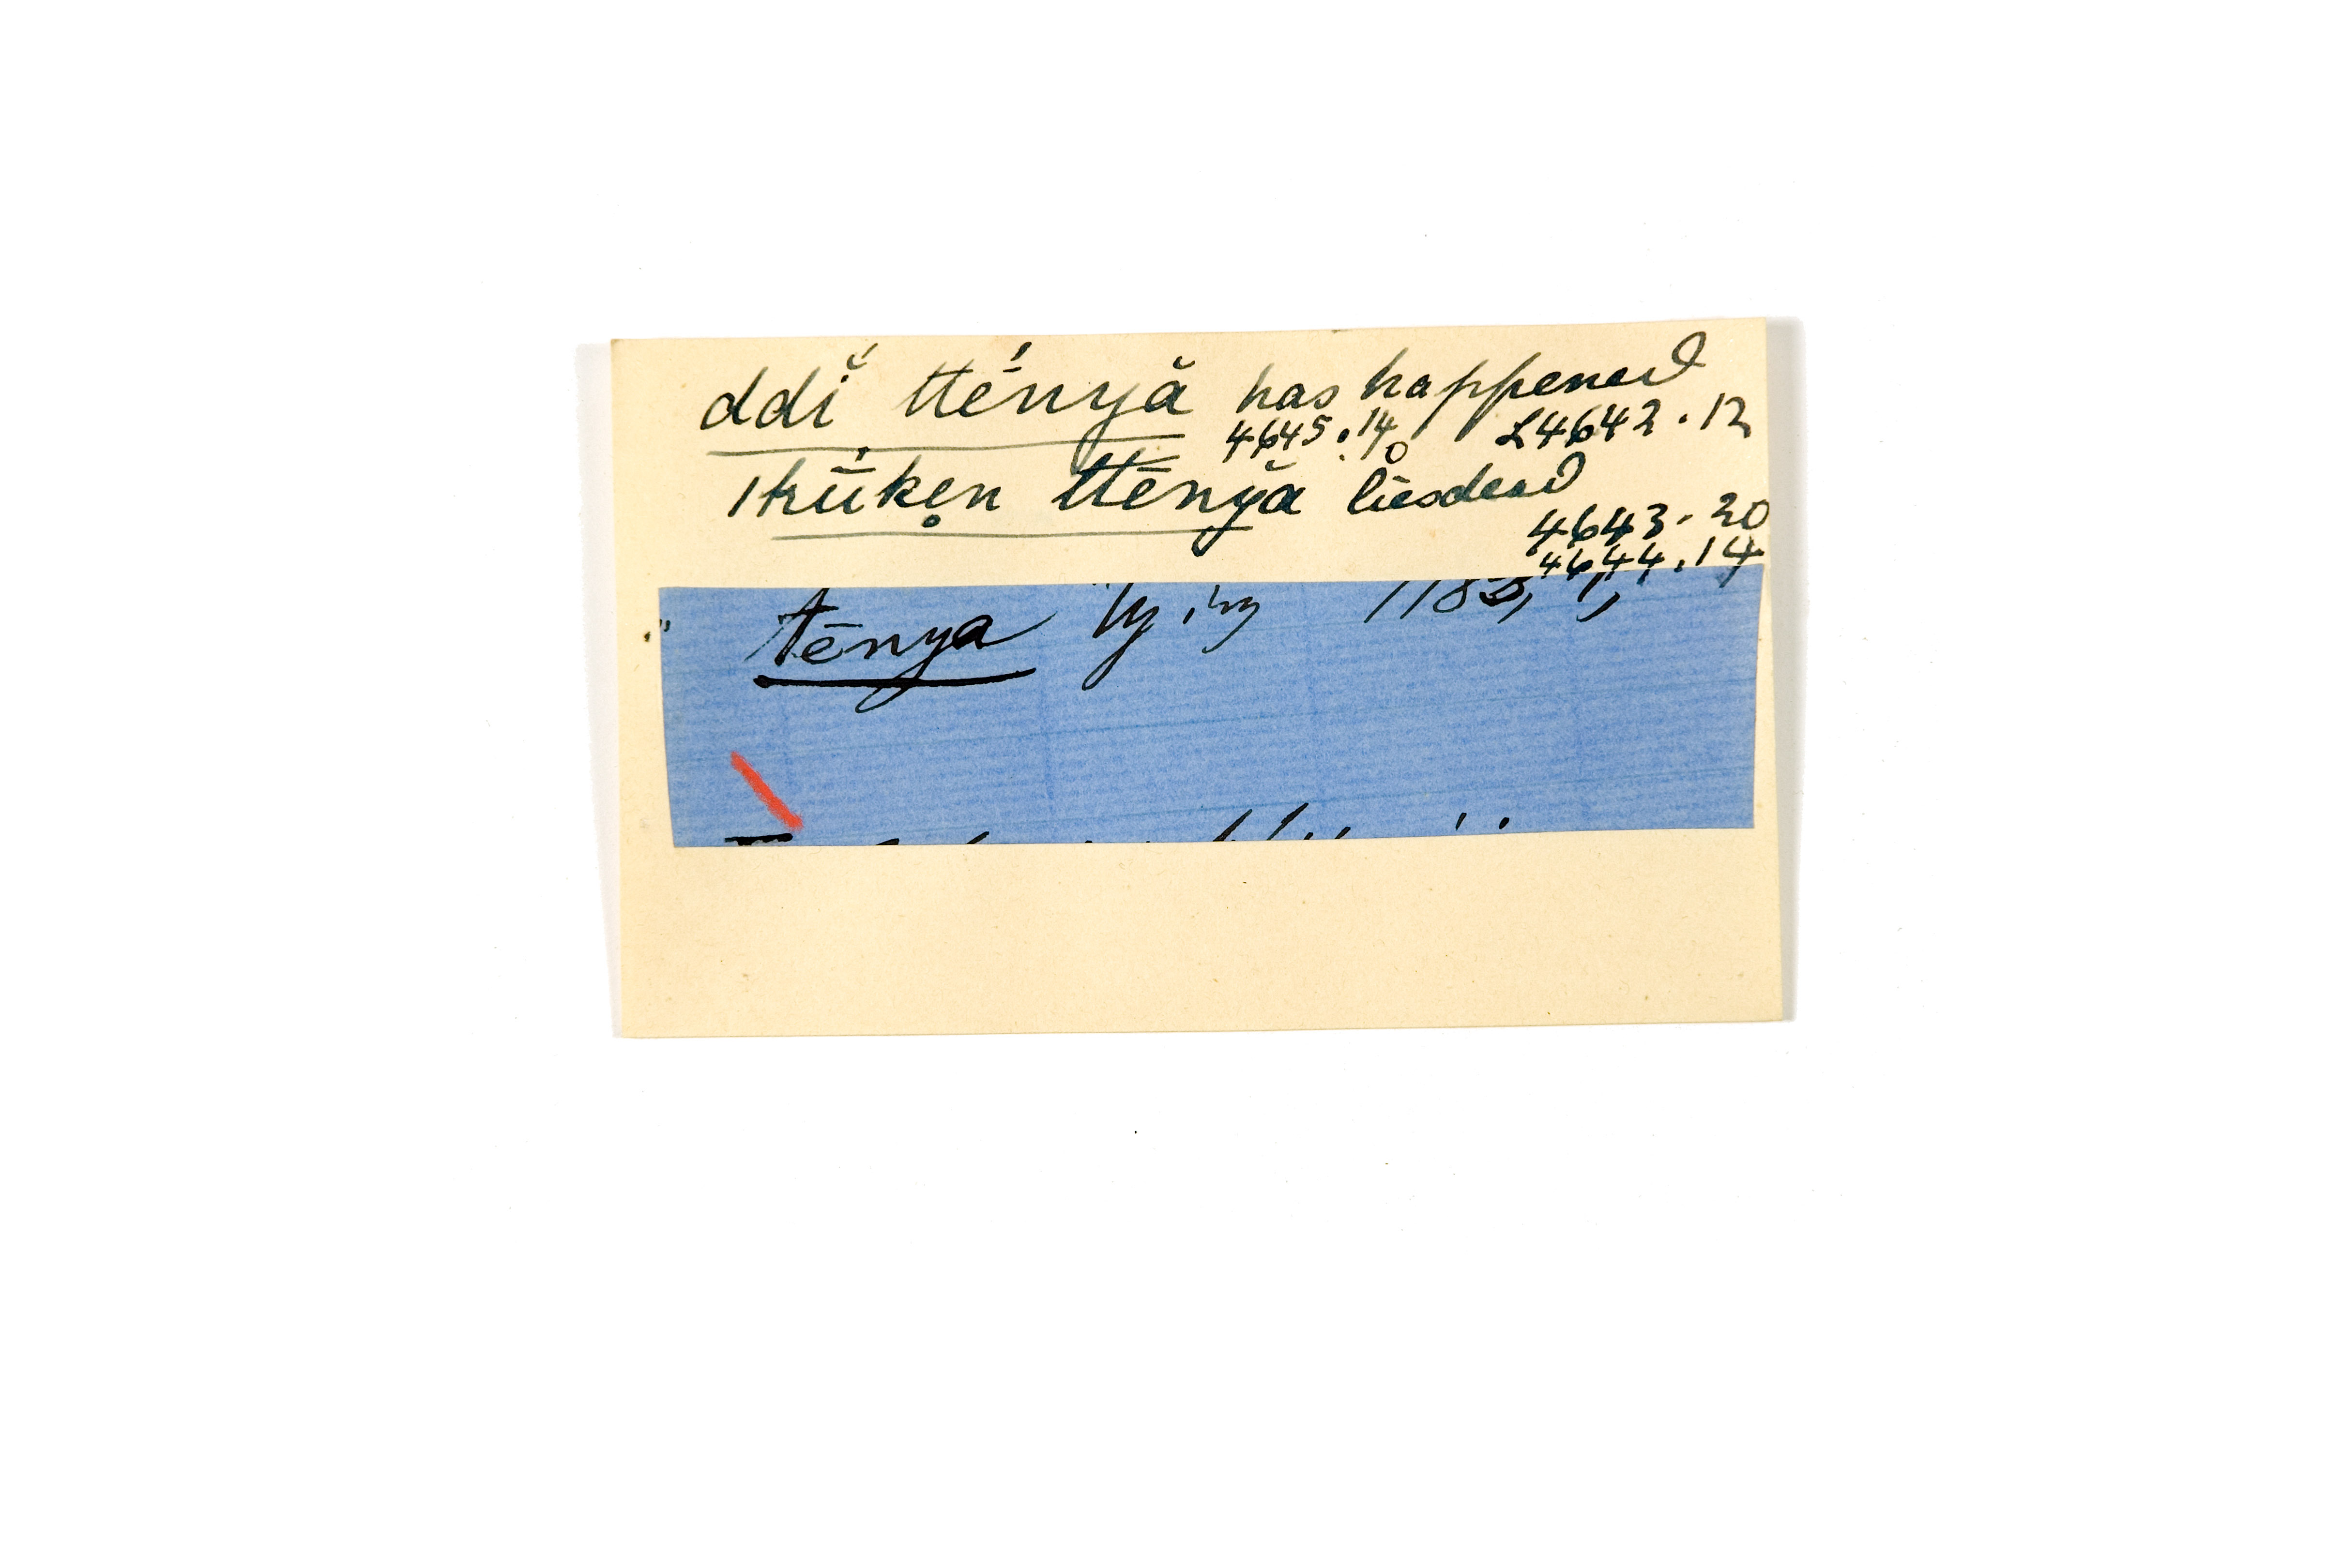 ddĭ́ ttḗnyă has happened
4645.14 L4642.12
ıkü̅ken̥ ttēnyă lies dead
4643.20
4644.14
tēnya lying